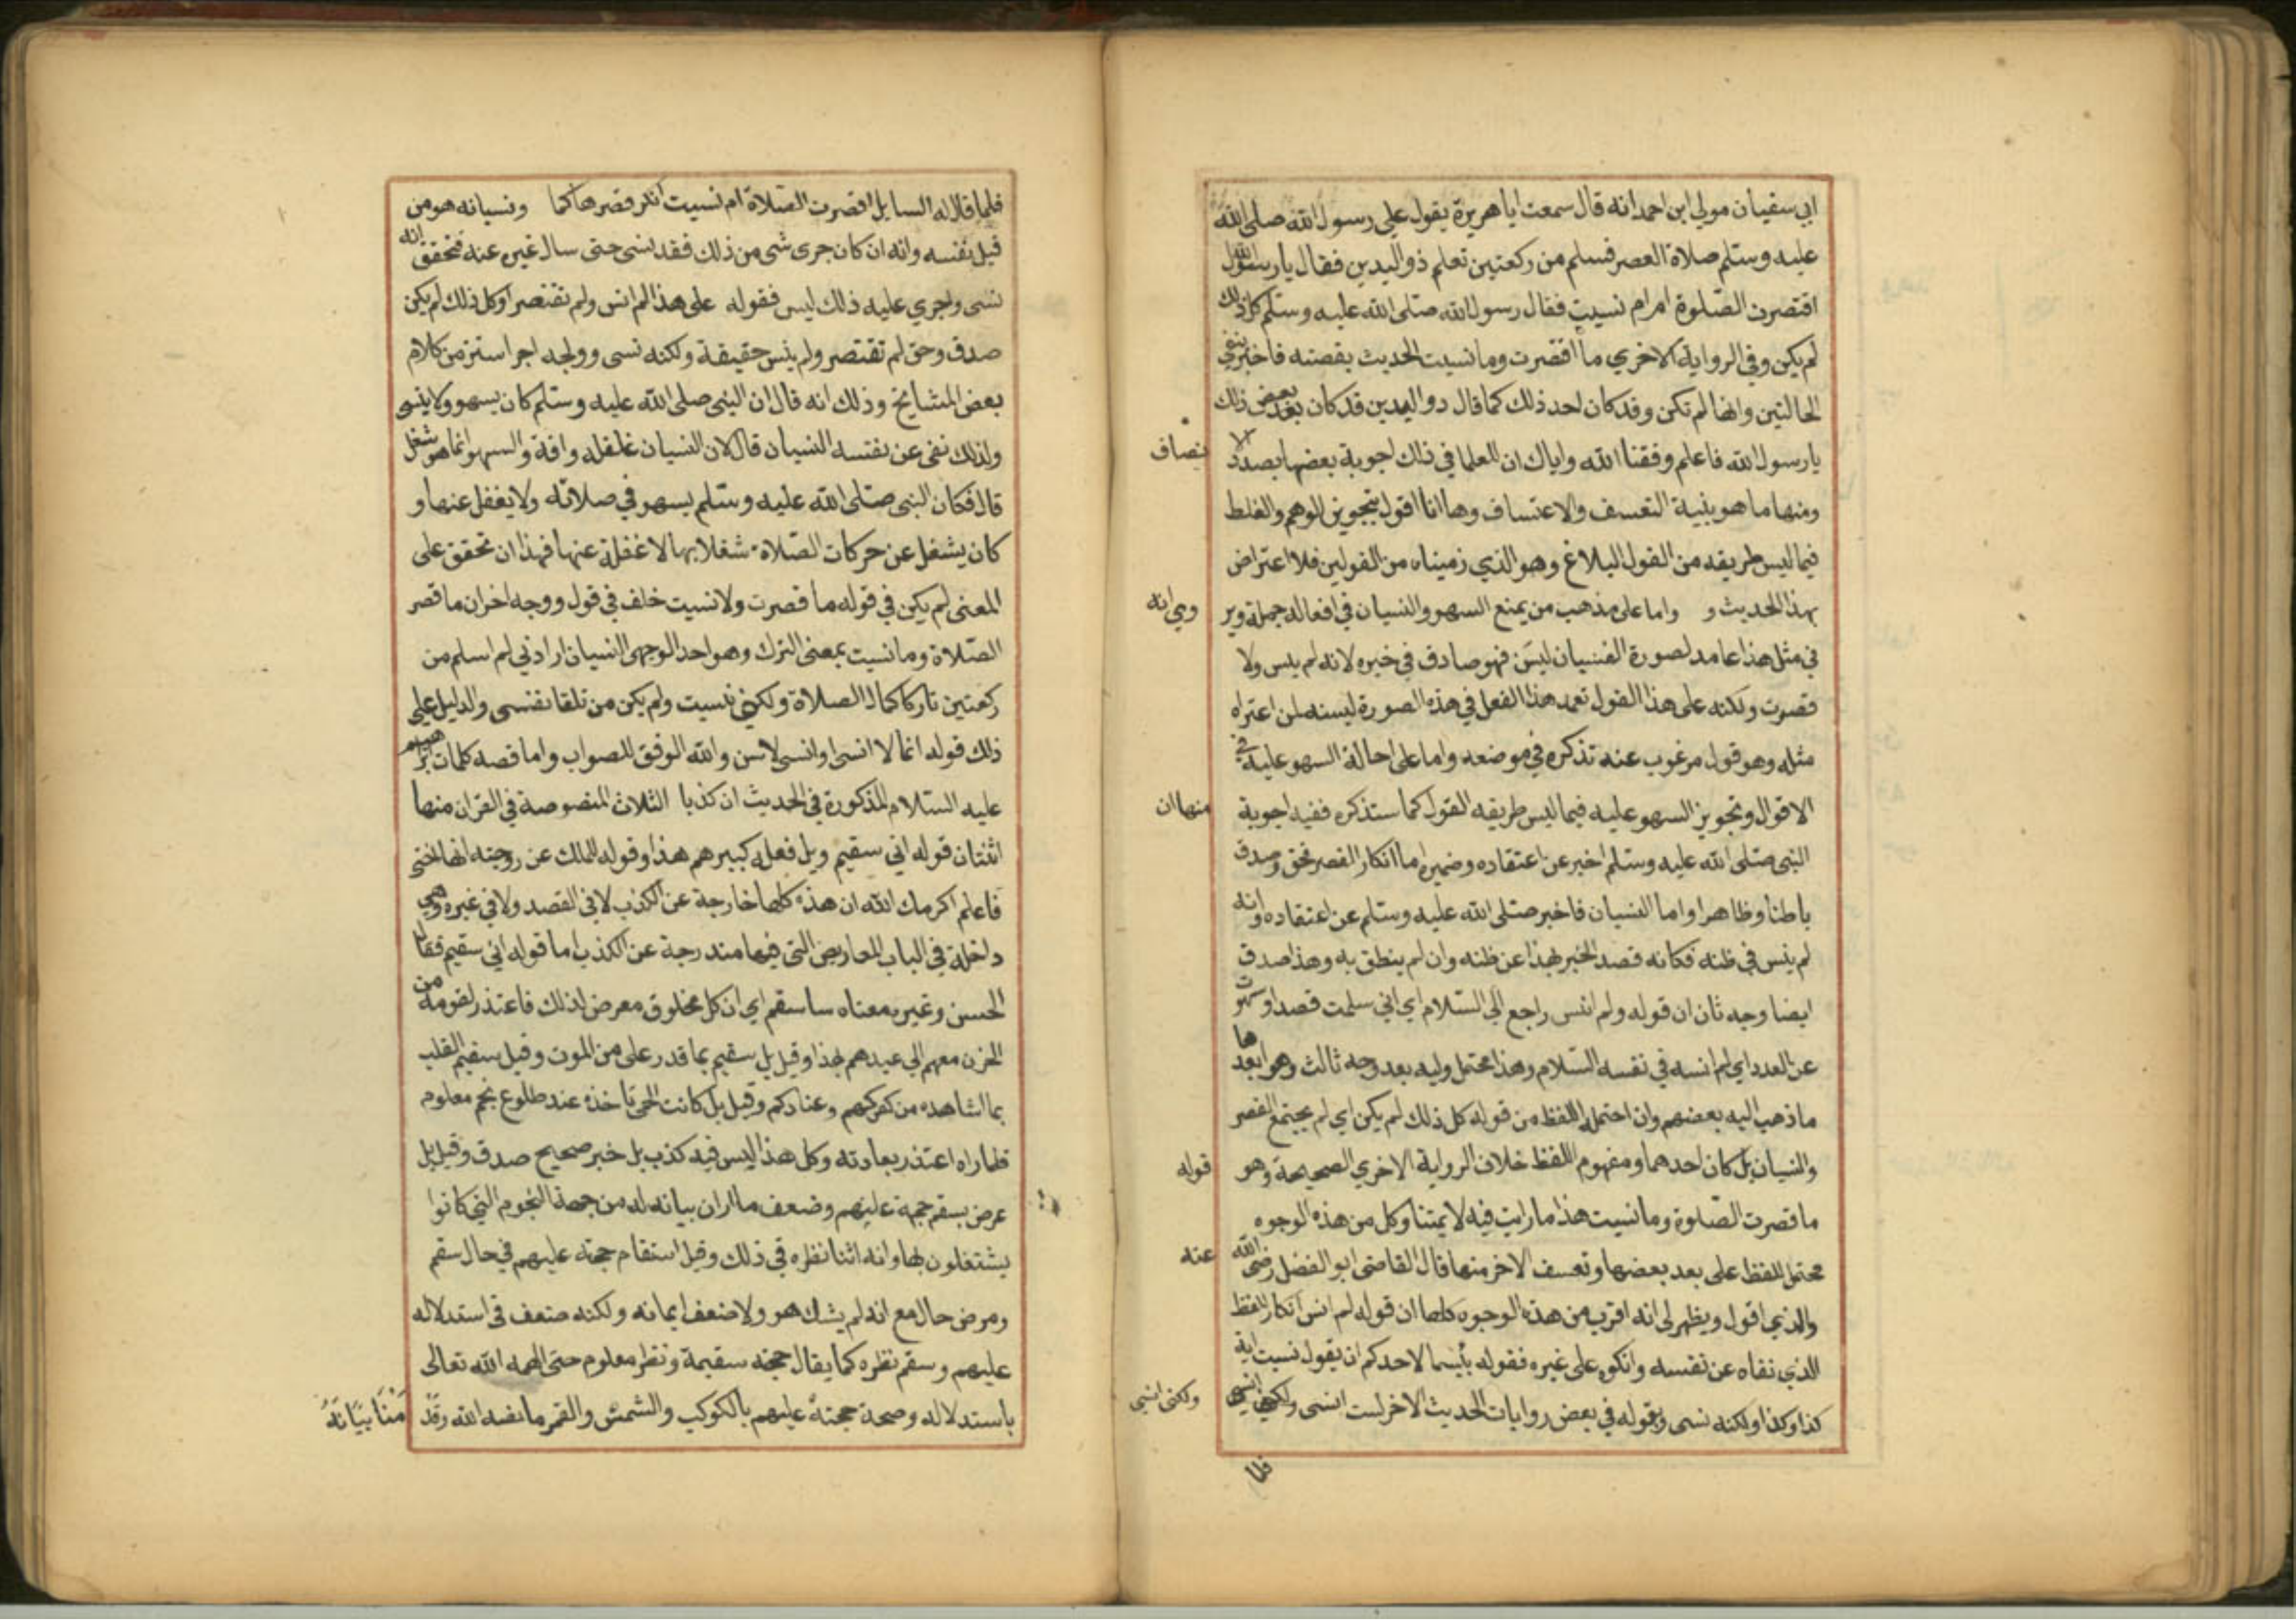 ابي سفيان مولي ابن احمد انه قال سمعت ابا هريرة يقول علي رسول الله صلى الله
عليه وسلم صلاة العصر فسلم من ركعتين تعلم ذو اليدين فقال يا رسول الله
اقتصرت الصلوة ام ام نسيت فقال رسول الله صلى الله عليه وسلم كل ذلك
لم يكن وفي الرواية الاخري ما اقتصرت وما نسيت الحديث بقصته فاخبر بنفي
الحالتين وانها لم تكن وقد كان احد ذلك كما قال ذو اليدين قد كان بعض ذلك
يا رسول الله فاعلم وفقنا الله واياك ان للعلما في ذلك اجوبة بعضها بصدد الا
نصاف
ومنها ما هو بنية التعسف والاعتساف وها انا اقول بتجويز الوهم والغلط
فيما ليس طريقه من القول البلاغ وهو الذي زميناه من القولين فلا اعتراض
بهذا الحديث و واما على مذهب من يمنع السهو والنسيان في افعاله جملة وير
ويري انه
في مثل هذا عامد لصورة النسيان ليسن فهو صادق في خبره لانه لم ينس ولا
قصرت ولكنه على هذا القول تعمد هذا الفعل في هذه الصورة ليسنه لمن اعتراه
مثله وهو قول مرغوب عنه تذكره في موضعه واما على احالة السهو عليه في
الاقوال وتجويز السهو عليه فيما ليس طريقه القول كما ستذكره ففيه اجوبة
منها ان
النبي صلى الله عليه وسلم اخبر عن اعتقاده وضميره اما انكار القصر فحق وصدق
باطنا وظاهرا واما النسيان فاخبر صلى الله عليه وسلم عن اعتقاده وانه
لم ينس في ظنه فكانه قصد الخبر بهذا عن ظنه وان لم ينطق به وهذا صدق
ايضا وجه ثان ان قوله ولم انس راجع الي السلام اي اني سلمت قصدا وسهوت
عن العدد اي لم انسه في نفسه السلام وهذا محتمل وليه بعد وجه ثالث وهو ابعدها
ما ذهب اليه بعضهم وان احتمله اللفظ من قوله كل ذلك لم يكن اي لم يجتمع القصر
والنسيان بل كان احدهما ومفهوم اللفظ خلاف الرواية الاخري الصحيحة وهو
قوله
ما قصرت الصلوة وما نسيت هذا ما رايت فيه لايمتنا وكل من هذه الوجوه
محتمل للفظ على بعد بعضها وتعسف الاخر منها قال القاضي ابو الفضل رضي الله
عنه
والذي اقول ويظهر لي انه اقرب من هذه الوجوه كلها ان قوله لم انس انكار للفظ
الذي نفاه عن نفسه وانكره على غيره فقوله بئسما لاحدكم ان يقول نسيت اية
كذا وكذا ولكنه نسي وبقوله في بعض روايات الحديث الاخر لست انسى ولكني انسي
ولكني انسي
فلما
فلما قال له السايل اقصرت الصلاة ام نسيت انكر قصرها كما ونسيانه هو من
قبل نفسه وانه ان كان جرى شي من ذلك فقد نسي حتى سال غيره عنه فتحقق انه
نسي واجري عليه ذلك ليس فقوله على هذا لم انس ولم تقتصر او كل ذلك لم يكن
صدق وحق لم تقتصر ولم ينس حقيقة ولكنه نسي ووجه اجر استنز من كلام
بعض المشايخ وذلك انه قال ان النبي صلى الله عليه وسلم كان يسهو ولا ينسي
ولذلك نفى عن نفسه النسيان قال لان النسيان غفلة وافة والسهو انما هو شغل
قال فكان النبي صلى الله عليه وسلم يسهو في صلاته ولا يغفل عنها و
كان يشغل عن حركات الصلاة شغلا بها لا غفلة عنها فهذا ان تحقق على
المعنى لم يكن في قوله ما قصرت ولا نسيت خلف في قول ووجه اخر ان ما قصر
الصلاة وما نسيت بمعنى الترك وهو احد الوجهي النسيان اراد ني لم اسلم من
ركعتين تاركا كمال الصلاة ولكني نسيت ولم يكن من تلقا نفسي والدليل علي
ذلك قوله انما لا انسى او انسي لاسن والله الموفق للصواب واما قصه كلمات ابراهيم
عليه السلام المذكورة في الحديث ان كذبا الثلاث المنصوصة في القران منها
اثنتان قوله اني سقيم وبل فعله كبيرهم هذا وقوله للمالك عن زوجته انها اختي
فاعلم اكرمك الله ان هذه كلها خارجة عن الكذب لا في القصد ولا في غيره وهي
داخلة في الباب المعاريض التي فيها مندرجة عن الكذب اما قوله اني سقيم فقال
الحسن وغيره معناه ساسقم اي ان كل مخلوق معرض لذلك فاعتذر لقومه من
الخزن معهم الي عيدهم بهذا وقيل بل سقيم بما قدر على من الموت وقيل سقيم القلب
بما اشاهده من كفركم وعنادكم وقيل بل كانت الحمى تاخذه عند طلوع نجم معلوم
فلما راه اعتذر بعادته وكل هذا ليس فيه كذب بل خبر صحيح صدق وقيل بل
عرض بسقم حجته عليهم وضعف ما اران بيانه له من جهة النجوم التي كانوا
يشتغلون بها وانه اثنا نظره في ذلك وقبل استقام حجته عليهم في حال سقم
ومرض حال مع انه لم يشك هو ولا ضعف ايمانه ولكنه ضعف في استدلاله
عليهم وسقم نظره كما يقال حجته سقيمة ونظر معلوم حتى الهمه الله تعالى
باستدلاله وصحة حجته عليهم بالكوكب والشمس والقمر ما نفسه الله وقد
منا بيانه